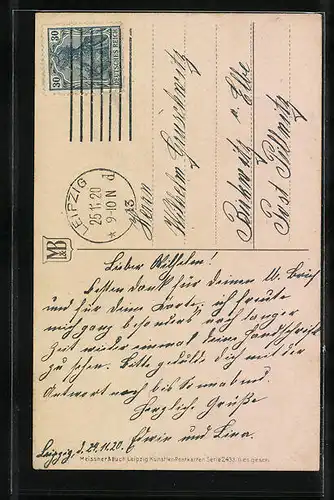 30 30
DEUTSCHES REICH
LEIPZIG
25.11.20
9-10 N d
* 13
Herrn
Wilhelm
a. Elbe
Post Pillnitz
M&B
Lieber Wilhelm!
Besten Dank für deinen Brief
und für deine Karte, ich freute
mich ganz besonders nach langer
Zeit wieder einmal deine Handschrift
zu sehen. Bitte gedulde dich mit der
Antwort noch bis Sonnabend.
Herzliche Grüße
Leipzig, d. 24.11.20. Erwin und
Meissner & Buch, Leipzig, Künstler-Postkarten. Serie 2433. Ges. gesch.